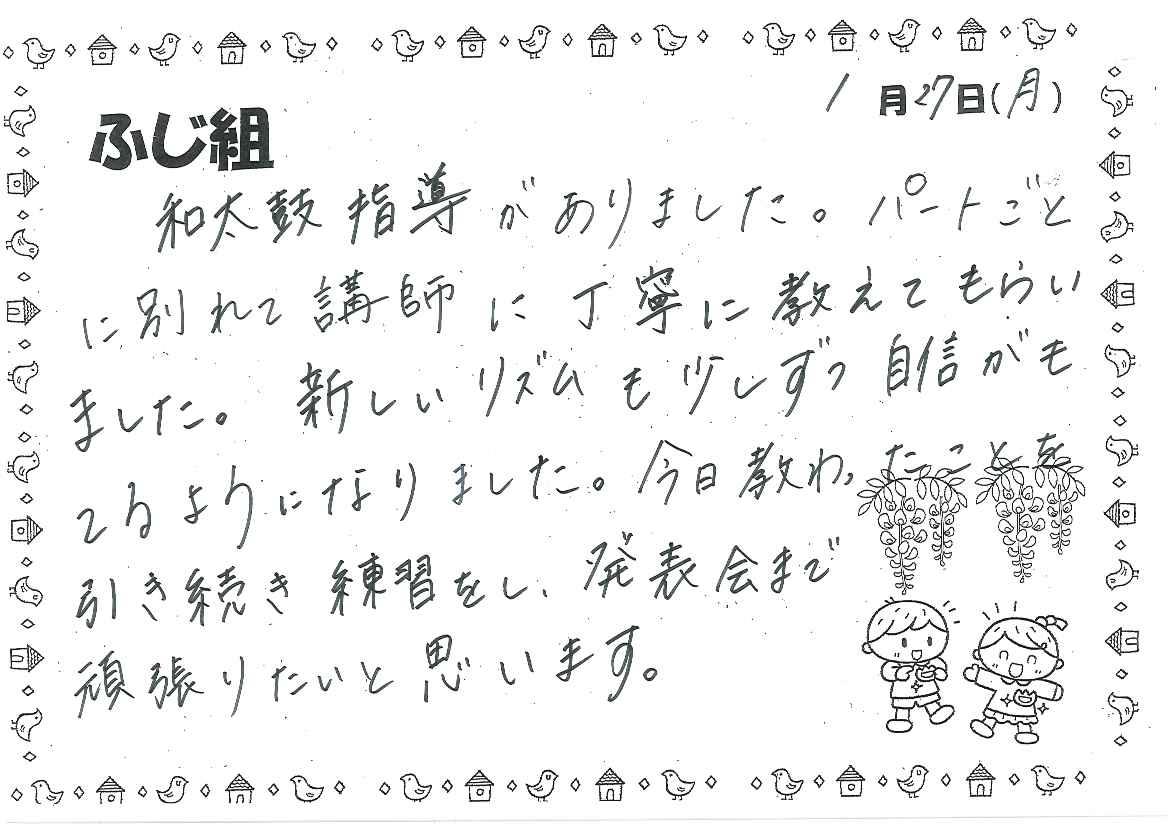 1月27日(月)
ふじ組
和太鼓指導がありました。パートごと
に別れて講師に丁寧に教えてもらい
ました。新しいリズムも少しずつ自信がも
てるようになりました。今日教わったことを
引き続き練習をし、発表会まで
頑張りたいと思います。